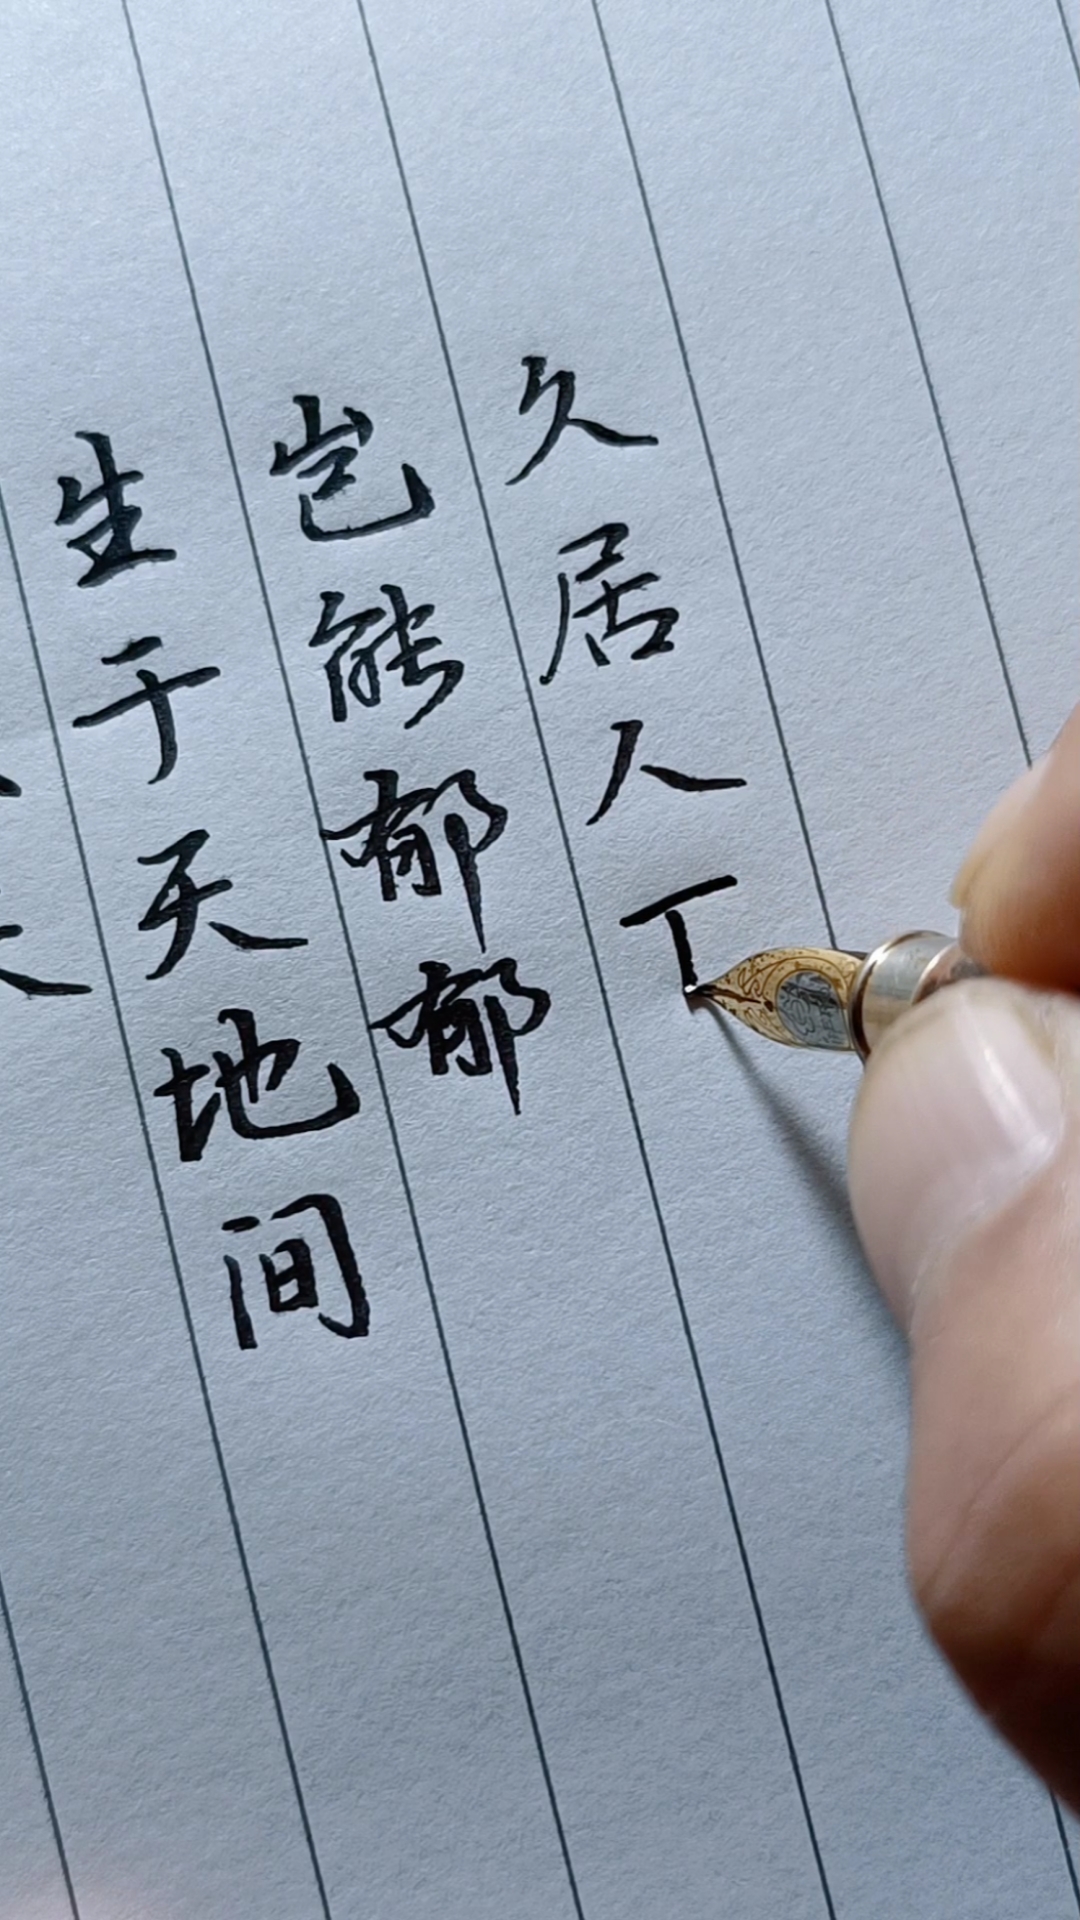 生于天地间
岂能郁郁
久居人下